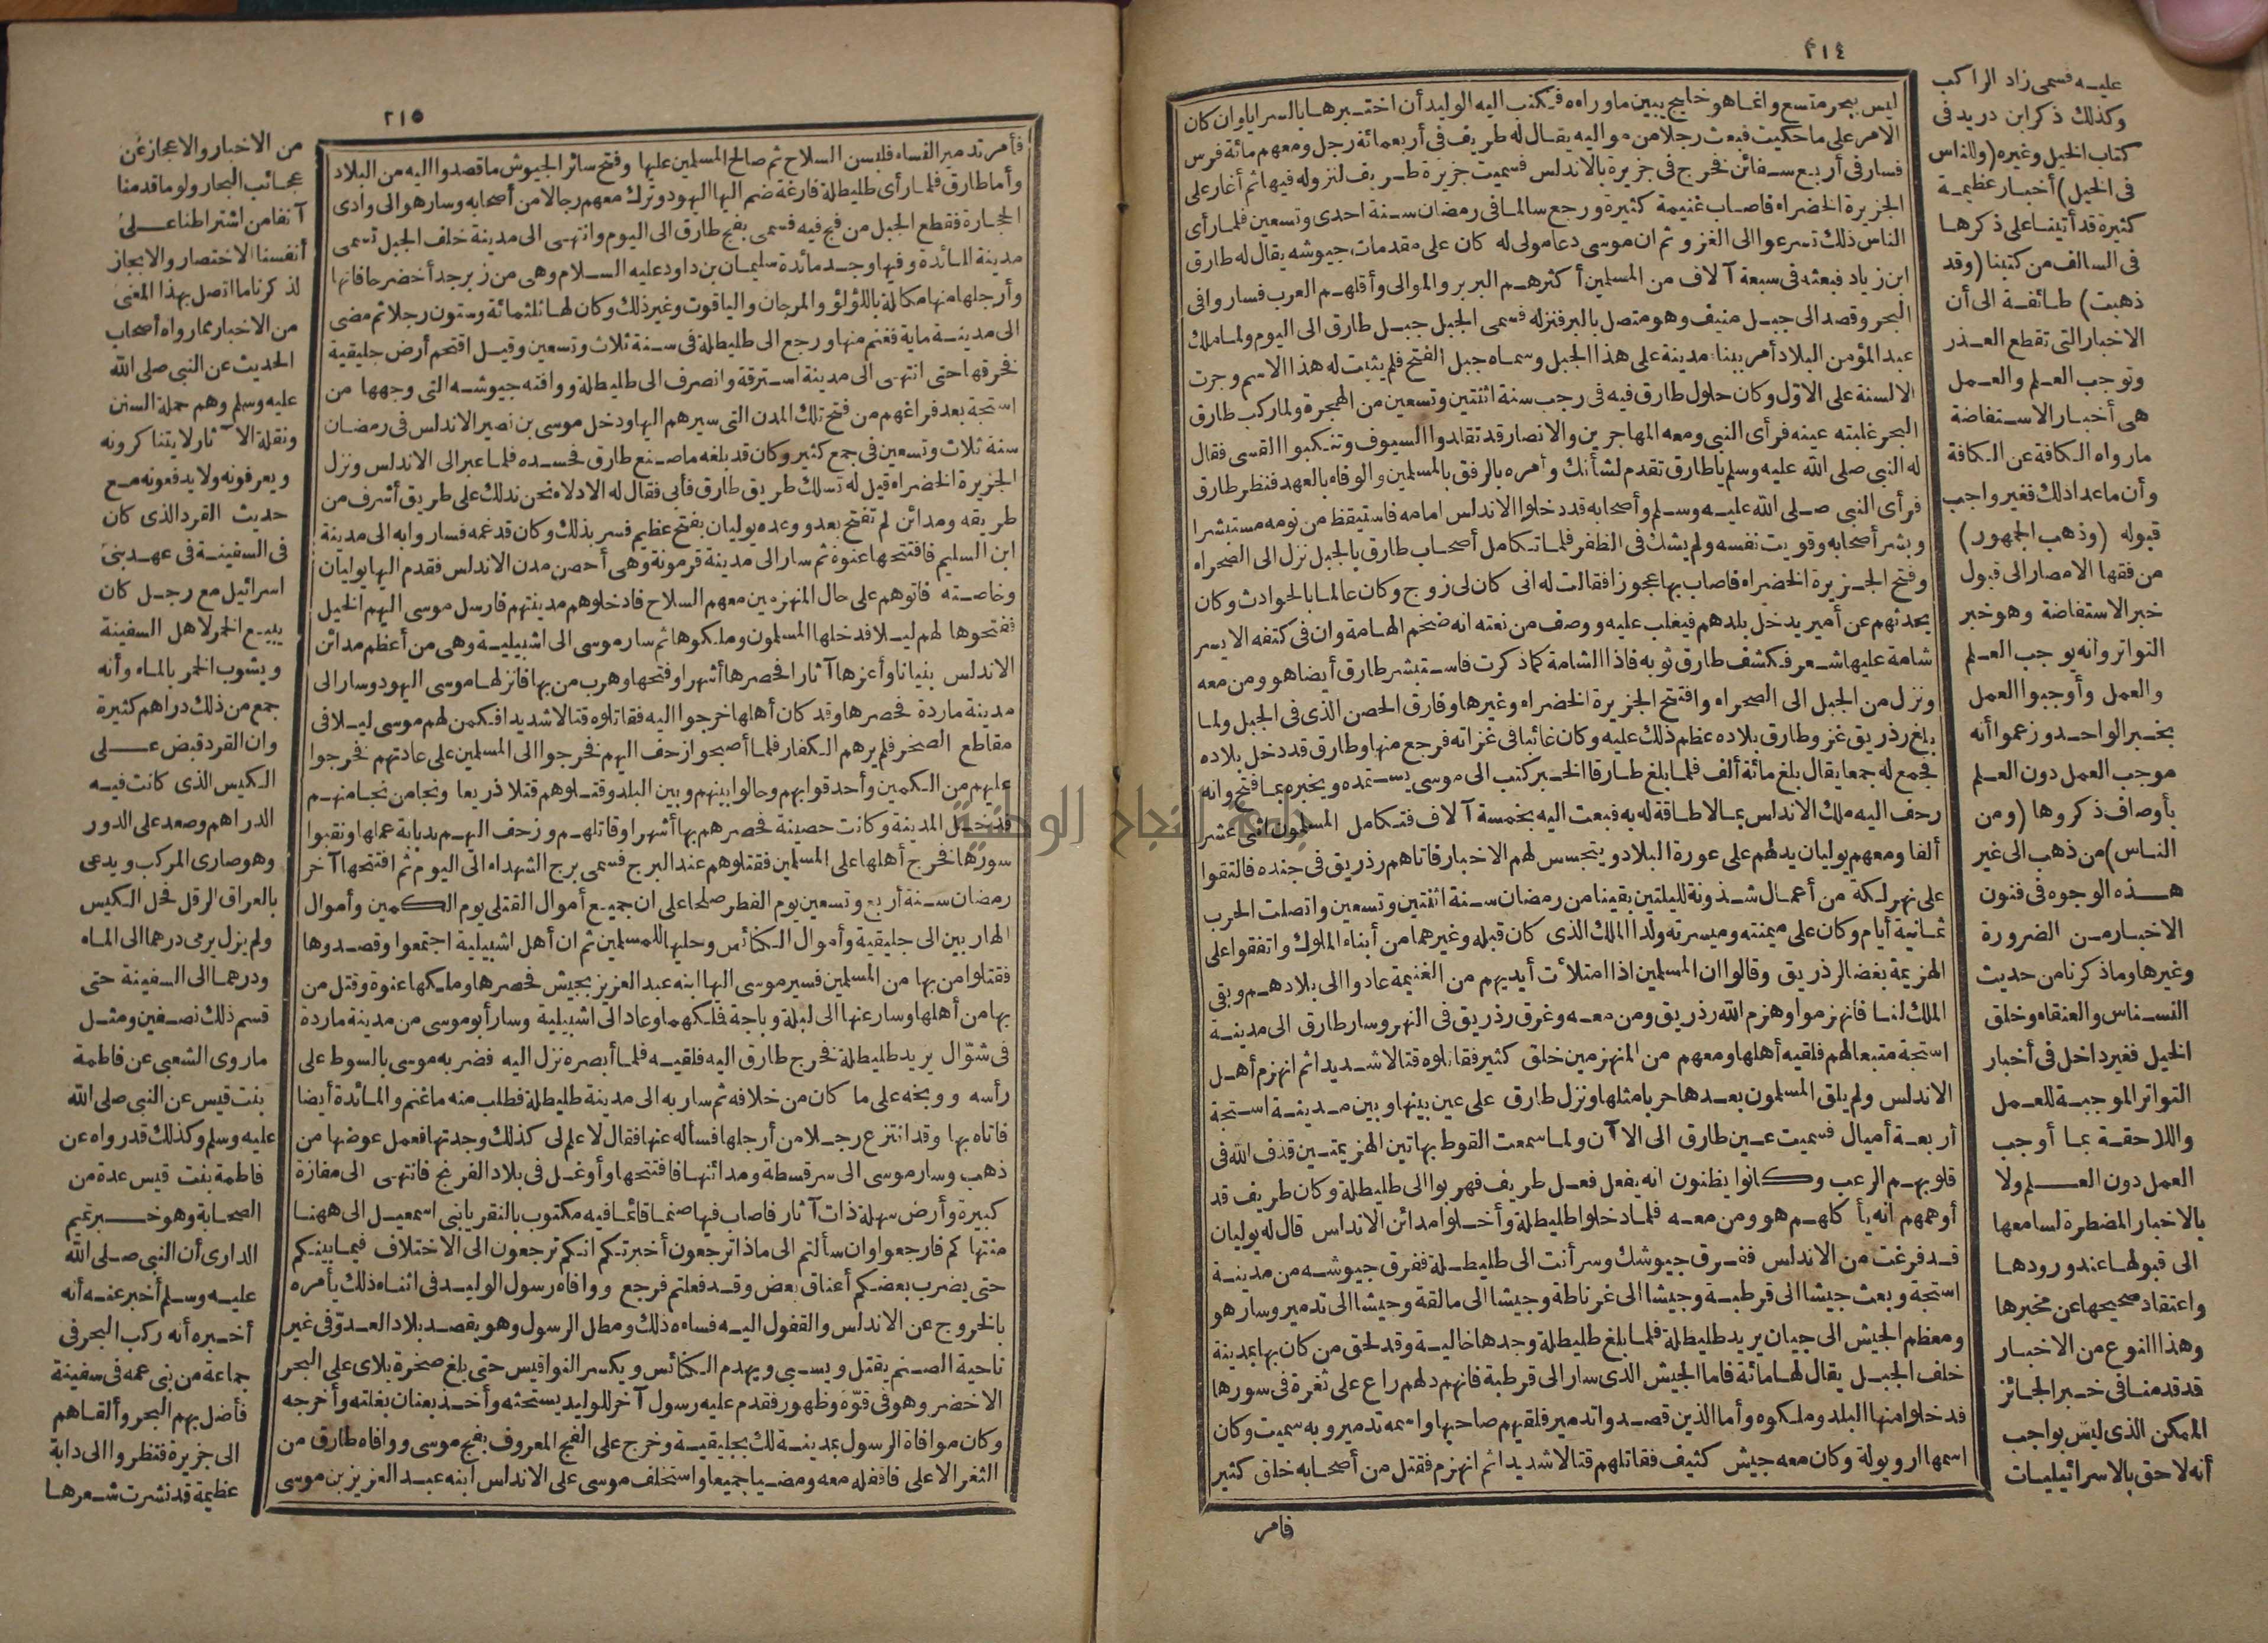 ٢١٤
ليس ببحر متسع وانما هو خليج يبين ماوراءه فكتب اليه الوليد أن اختبرها بالسرايا وان كان
الامر على ماحكيت فبعث رجلا من مواليه يقال له طريف فى أربعمائة رجل ومعهم مائة فرس
فسار فى أربع سفائن فخرج فى جزيرة بالاندلس فسميت جزيرة طريف لنزوله فيها ثم أغار على
الجزيرة الخضراء فاصاب غنيمة كثيرة ورجع سالما فى رمضان سنة احدى وتسعين فلما رأى
الناس ذلك تسرعوا الى الغزو ثم ان موسى دعا مولى له كان على مقدمات جيوشه يقال له طارق
ابن زياد فبعثه فى سبعة آلاف من المسلمين أكثرهم البربر والموالى وأقلهم العرب فساروا فى
البحر وقصد الى جبل منيف وهو متصل بالبر فنزله فسمى الجبل جبل طارق الى اليوم ولما ملك
عبد المؤمن البلاد أمر ببناء مدينة على هذا الجبل وسماه جبل الفتح فلم يثبت له هذا الاسم وجرت
الالسنة على الاول وكان حلول طارق فيه فى رجب سنة اثنتين وتسعين من الهجرة ولما ركب طارق
البحر غلبته عينه فرأى النبى ومعه المهاجرين والانصار قد تقلدوا السيوف وتنكبوا القسى فقال
له النبى صلى الله عليه وسلم ياطارق تقدم لشأنك وأمره بالرفق بالمسلمين والوفاء بالعهد فنظر طارق
فرأى النبى صلى الله عليه وسلم وأصحابه قد دخلوا الاندلس امامه فاستيقظ من نومه مستبشرا
وبشر أصحابه وقويت نفسه ولم يشك فى الظفر فلما تكامل أصحاب طارق بالجبل نزل الى الصحراء
وفتح الجزيرة الخضراء فاصاب بها عجوزا فقالت له انى كان لى زوج وكان عالما بالحوادث وكان
يحدثهم عن أمير يدخل بلدهم فيغلب عليه ووصف من نعته انه ضخم الهامة وان فى كتفه الايسر
شامة عليها شعر فكشف طارق ثوبه فاذا الشامة كما ذكرت فاستبشر طارق أيضا هو ومن معه
ونزل من الجبل الى الصحراء وافتتح الجزيرة الخضراء وغيرها وفارق الحصن الذى فى الجبل ولما
بلغ رذريق غزو طارق بلاده عظم ذلك عليه وكان غائبا فى غزاته فرجع منها وطارق قد دخل بلاده
فجمع له جمعا يقال بلغ مائة ألف فلما بلغ طارقا الخبر كتب الى موسى يستمده ويخبره بما فتح وانه
زحف اليه ملك الاندلس بما لاطاقة له به فبعث اليه بخمسة آلاف فتكامل المسلمون اثنى عشر
ألفا ومعهم يوليان يدلهم على عورة البلاد ويتجسس لهم الاخبار فاتاهم رذريق فى جنده فالتقوا
على نهر لكة من أعمال شذونة لليلتين بقيتا من رمضان سنة اثنتين وتسعين واتصلت الحرب
ثمانية أيام وكان على ميمنته وميسرته ولدا الملك الذى كان قبله وغيرهما من أبناء الملوك واتفقوا على
الهزيمة بغضا لرذريق وقالوا ان المسلمين اذا امتلأت أيديهم من الغنيمة عادوا الى بلادهم وبقى
الملك لنا فانهزموا وهزم الله رذريق ومن معه وغرق رذريق فى النهر وسار طارق الى مدينة
استجة متبعا لهم فلقيه أهلها ومعهم من المنهزمين خلق كثير فقاتلوه قتالا شديدا ثم انهزم أهل
الاندلس ولم يلق المسلمون بعدها حربا مثلها ونزل طارق على عين بينها وبين مدينة استجة
أربعة أميال فسميت عين طارق الى الآن ولما سمعت القوط بهاتين الهزيمتين قذف الله فى
قلوبهم الرعب وكانوا يظنون انه يفعل فعل طريف فهربوا الى طليطلة وكان طريف قد
أوهمهم انه يأكلهم هو ومن معه فلما دخلوا طليطلة وأخلوا مدائن الاندلس قال له يوليان
قد فرغت من الاندلس ففرق جيوشك وسر أنت الى طليطلة ففرق جيوشه من مدينة
استجة وبعث جيشا الى قرطبة وجيشا الى غرناطة وجيشا الى مالقة وجيشا الى تدمير وسار هو
ومعظم الجيش الى جيان يريد طليطلة فلما بلغ طليطلة وجدها خالية وقد لحق من كان بها بمدينة
خلف الجبل يقال لها مائة فاما الجيش الذى سار الى قرطبة فانهم دلهم راع على ثغرة فى سورها
فدخلوا منها البلد وملكوه وأما الذين قصدوا تدمير فلقيهم صاحبها واسمه تدمير وبه سميت وكان
اسمها اريولة وكان معه جيش كثيف فقاتلهم قتالا شديدا ثم انهزم فقتل من أصحابه خلق كثير
فامر
عليه فسمى زاد الراكب
وكذلك ذكر ابن دريد فى
كتاب الخيل وغيره (وللناس
فى الخيل) أخبار عظيمة
كثيرة قد أتينا على ذكرها
فى السالف من كتبنا (وقد
ذهبت) طائفة الى أن
الاخبار التى تقطع العذر
وتوجب العلم والعمل
هى أخبار الاستفاضة
مارواه الكافة عن الكافة
وأن ماعدا ذلك فغير واجب
قبوله (وذهب الجمهور)
من فقهاء الامصار الى قبول
خبر الاستفاضة وهو خبر
التواتر وانه يوجب العلم
والعمل وأوجبوا العمل
بخبر الواحد وزعموا أنه
موجب العمل دون العلم
بأوصاف ذكروها (ومن
الناس) من ذهب الى غير
هذه الوجوه فى فنون
الاخبار من الضرورة
وغيرها وماذكرنا من حديث
النسناس والعنقاء وخلق
الخيل فغير داخل فى أخبار
التواتر الموجبة للعمل
واللاحقة بما أوجب
العمل دون العلم ولا
بالاخبار المضطرة لسامعها
الى قبولها عند ورودها
واعتقاد صحيحها عن مخبرها
وهذا النوع من الاخبار
قد قدمنا فى خبر الجائز
الممكن الذى ليس بواجب
أنه لاحق بالاسرائيليات
٢١٥
فأمر تدمير النساء فلبسن السلاح ثم صالح المسلمين عليها وفتح سائر الجيوش ماقصدوا اليه من البلاد
وأما طارق فلما رأى طليطلة فارغة ضم اليها اليهود وترك معهم رجالا من أصحابه وسار هو الى وادى
الحجارة فقطع الجبل من فج فيه فسمى بفج طارق الى اليوم وانتهى الى مدينة خلف الجبل تسمى
مدينة المائدة وفيها وجد مائدة سليمان بن داود عليه السلام وهى من زبرجد أخضر حافاتها
وأرجلها منها مكللة باللؤلؤ والمرجان والياقوت وغير ذلك وكان لها ثلثمائة وستون رجلا ثم مضى
الى مدينة ماية فغنم منها ورجع الى طليطلة فى سنة ثلاث وتسعين وقيل اقتحم أرض جليقية
فخرقها حتى انتهى الى مدينة استرقة وانصرف الى طليطلة ووافته جيوشه التى وجهها من
استجة بعد فراغهم من فتح تلك المدن التى سيرهم اليها ودخل موسى بن نصير الاندلس فى رمضان
سنة ثلاث وتسعين فى جمع كثير وكان قد بلغه ماصنع طارق فحسده فلما عبر الى الاندلس ونزل
الجزيرة الخضراء قيل له تسلك طريق طارق فأبى فقال له الادلاء نحن ندلك على طريق أشرف من
طريقه ومدائن لم تفتح بعد ووعده يوليان بفتح عظيم فسر بذلك وكان قد غمه فساروا به الى مدينة
ابن السليم فافتتحها عنوة ثم سار الى مدينة قرمونة وهى أحصن مدن الاندلس فقدم اليها يوليان
وخاصته فاتوهم على حال المنهزمين معهم السلاح فادخلوهم مدينتهم فارسل موسى اليهم الخيل
ففتحوها لهم ليلا فدخلها المسلمون وملكوها ثم سار موسى الى اشبيلية وهى من أعظم مدائن
الاندلس بنيانا وأعزها آثارا فحصرها أشهرا وفتحها وهرب من بها فانزلها موسى اليهود وسار الى
مدينة ماردة فحصرها وقد كان أهلها خرجوا اليه فقاتلوه قتالا شديدا فكمن لهم موسى ليلا فى
مقاطع الصخر فلم يرهم الكفار فلما أصبحوا زحف اليهم فخرجوا الى المسلمين على عادتهم فخرجوا
عليهم من الكمين وأحدقوا بهم وحالوا بينهم وبين البلد وقتلوهم قتلا ذريعا ونجا من نجا منهم
فدخل المدينة وكانت حصينة فحصرهم بها أشهرا وقاتلهم وزحف اليهم بدبابة عملها ونقبوا
سورها فخرج أهلها على المسلمين فقتلوهم عند البرج فسمى برج الشهداء الى اليوم ثم افتتحها آخر
رمضان سنة أربع وتسعين يوم الفطر صلحا على ان جميع أموال القتلى يوم الكمين وأموال
الهاربين الى جليقية وأموال الكنائس وحليها للمسلمين ثم ان أهل اشبيلية اجتمعوا وقصدوها
فقتلوا من بها من المسلمين فسير موسى اليها ابنه عبد العزيز بجيش فحصرها وملكها عنوة وقتل من
بها من أهلها وسار عنها الى لبلة وباجة فملكهما وعاد الى اشبيلية وسار أبو موسى من مدينة ماردة
فى شوّال يريد طليطلة فخرج طارق اليه فلقيه فلما أبصره نزل اليه فضربه موسى بالسوط على
رأسه ووبخه على ما كان من خلافه ثم سار به الى مدينة طليطلة فطلب منه ماغنم والمائدة أيضا
فاتاه بها وقد انتزع رجلا من أرجلها فسأله عنها فقال لاعلم لى كذلك وجدتها فعمل عوضها من
ذهب وسار موسى الى سرقسطة ومدائنها فافتتحها وأوغل فى بلاد الفرنج فانتهى الى مفازة
كبيرة وأرض سهلة ذات آثار فاصاب فيها صنما قائما فيه مكتوب بالنقر يابنى اسمعيل الى ههنا
منتهاكم فارجعوا وان سألتم الى ماذا ترجعون أخبرتكم انكم ترجعون الى الاختلاف فيما بينكم
حتى يضرب بعضكم أعناق بعض وقد فعلتم فرجع ووافاه رسول الوليد فى اثناء ذلك يأمره
بالخروج عن الاندلس والقفول اليه فساءه ذلك ومطل الرسول وهو يقصد بلاد العدوّ فى غير
ناحية الصنم يقتل ويسبى ويهدم الكنائس ويكسر النواقيس حتى بلغ صخرة بلاى على البحر
الاخضر وهو فى قوّة وظهور فقدم عليه رسول آخر للوليد يستحثه وأخذ بعنان بغلته وأخرجه
وكان موافاة الرسول بمدينة لك بجليقية وخرج على الفج المعروف بفج موسى ووافاه طارق من
الثغر الاعلى فاقفله معه ومضيا جميعا واستخلف موسى على الاندلس ابنه عبد العزيز بن موسى
من الاخبار والاعجاز عن
عجائب البحار ولو ماقدمنا
آنفا من اشتراطنا على
أنفسنا الاختصار والايجاز
لذكرنا ما اتصل بهذا المعنى
من الاخبار مما رواه أصحاب
الحديث عن النبى صلى الله
عليه وسلم وهم حملة السنن
ونقلة الآثار لايتناكرونه
ويعرفونه ولا يدفعونه مع
حديث القرد الذى كان
فى السفينة فى عهد بنى
اسرائيل مع رجل كان
يبيع الخمر لاهل السفينة
ويشوب الخمر بالماء وأنه
جمع من ذلك دراهم كثيرة
وان القرد قبض على
الكيس الذى كانت فيه
الدراهم وصعد على الدور
وهو صارى المركب ويدعى
بالعراق الرقل فحل الكيس
ولم يزل يرمى درهما الى الماء
ودرهما الى السفينة حتى
قسم ذلك نصفين ومثل
ماروى الشعبى عن فاطمة
بنت قيس عن النبى صلى الله
عليه وسلم وكذلك قد رواه عن
فاطمة بنت قيس عدة من
الصحابة وهو خبر تميم
الدارى أن النبى صلى الله
عليه وسلم أخبر عنه أنه
أخبره أنه ركب البحر فى
جماعة من بنى عمه فى سفينة
فأضل بهم البحر وألقاهم
الى جزيرة فنظروا الى دابة
عظيمة قد نشرت شعرها
جامعة النجاح الوطنية